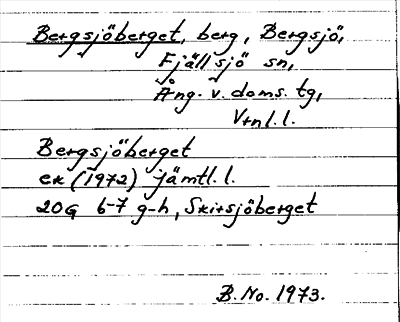 Bergsjöberget, berg, Bergsjö,
Fjällsjö sn,
Ång. v. doms. tg,
Vrnl. l.
Bergsjöberget
ek (1972) Jämtl. l.
20G 6-7 g-h, Skirsjöberget
B. No. 1973.